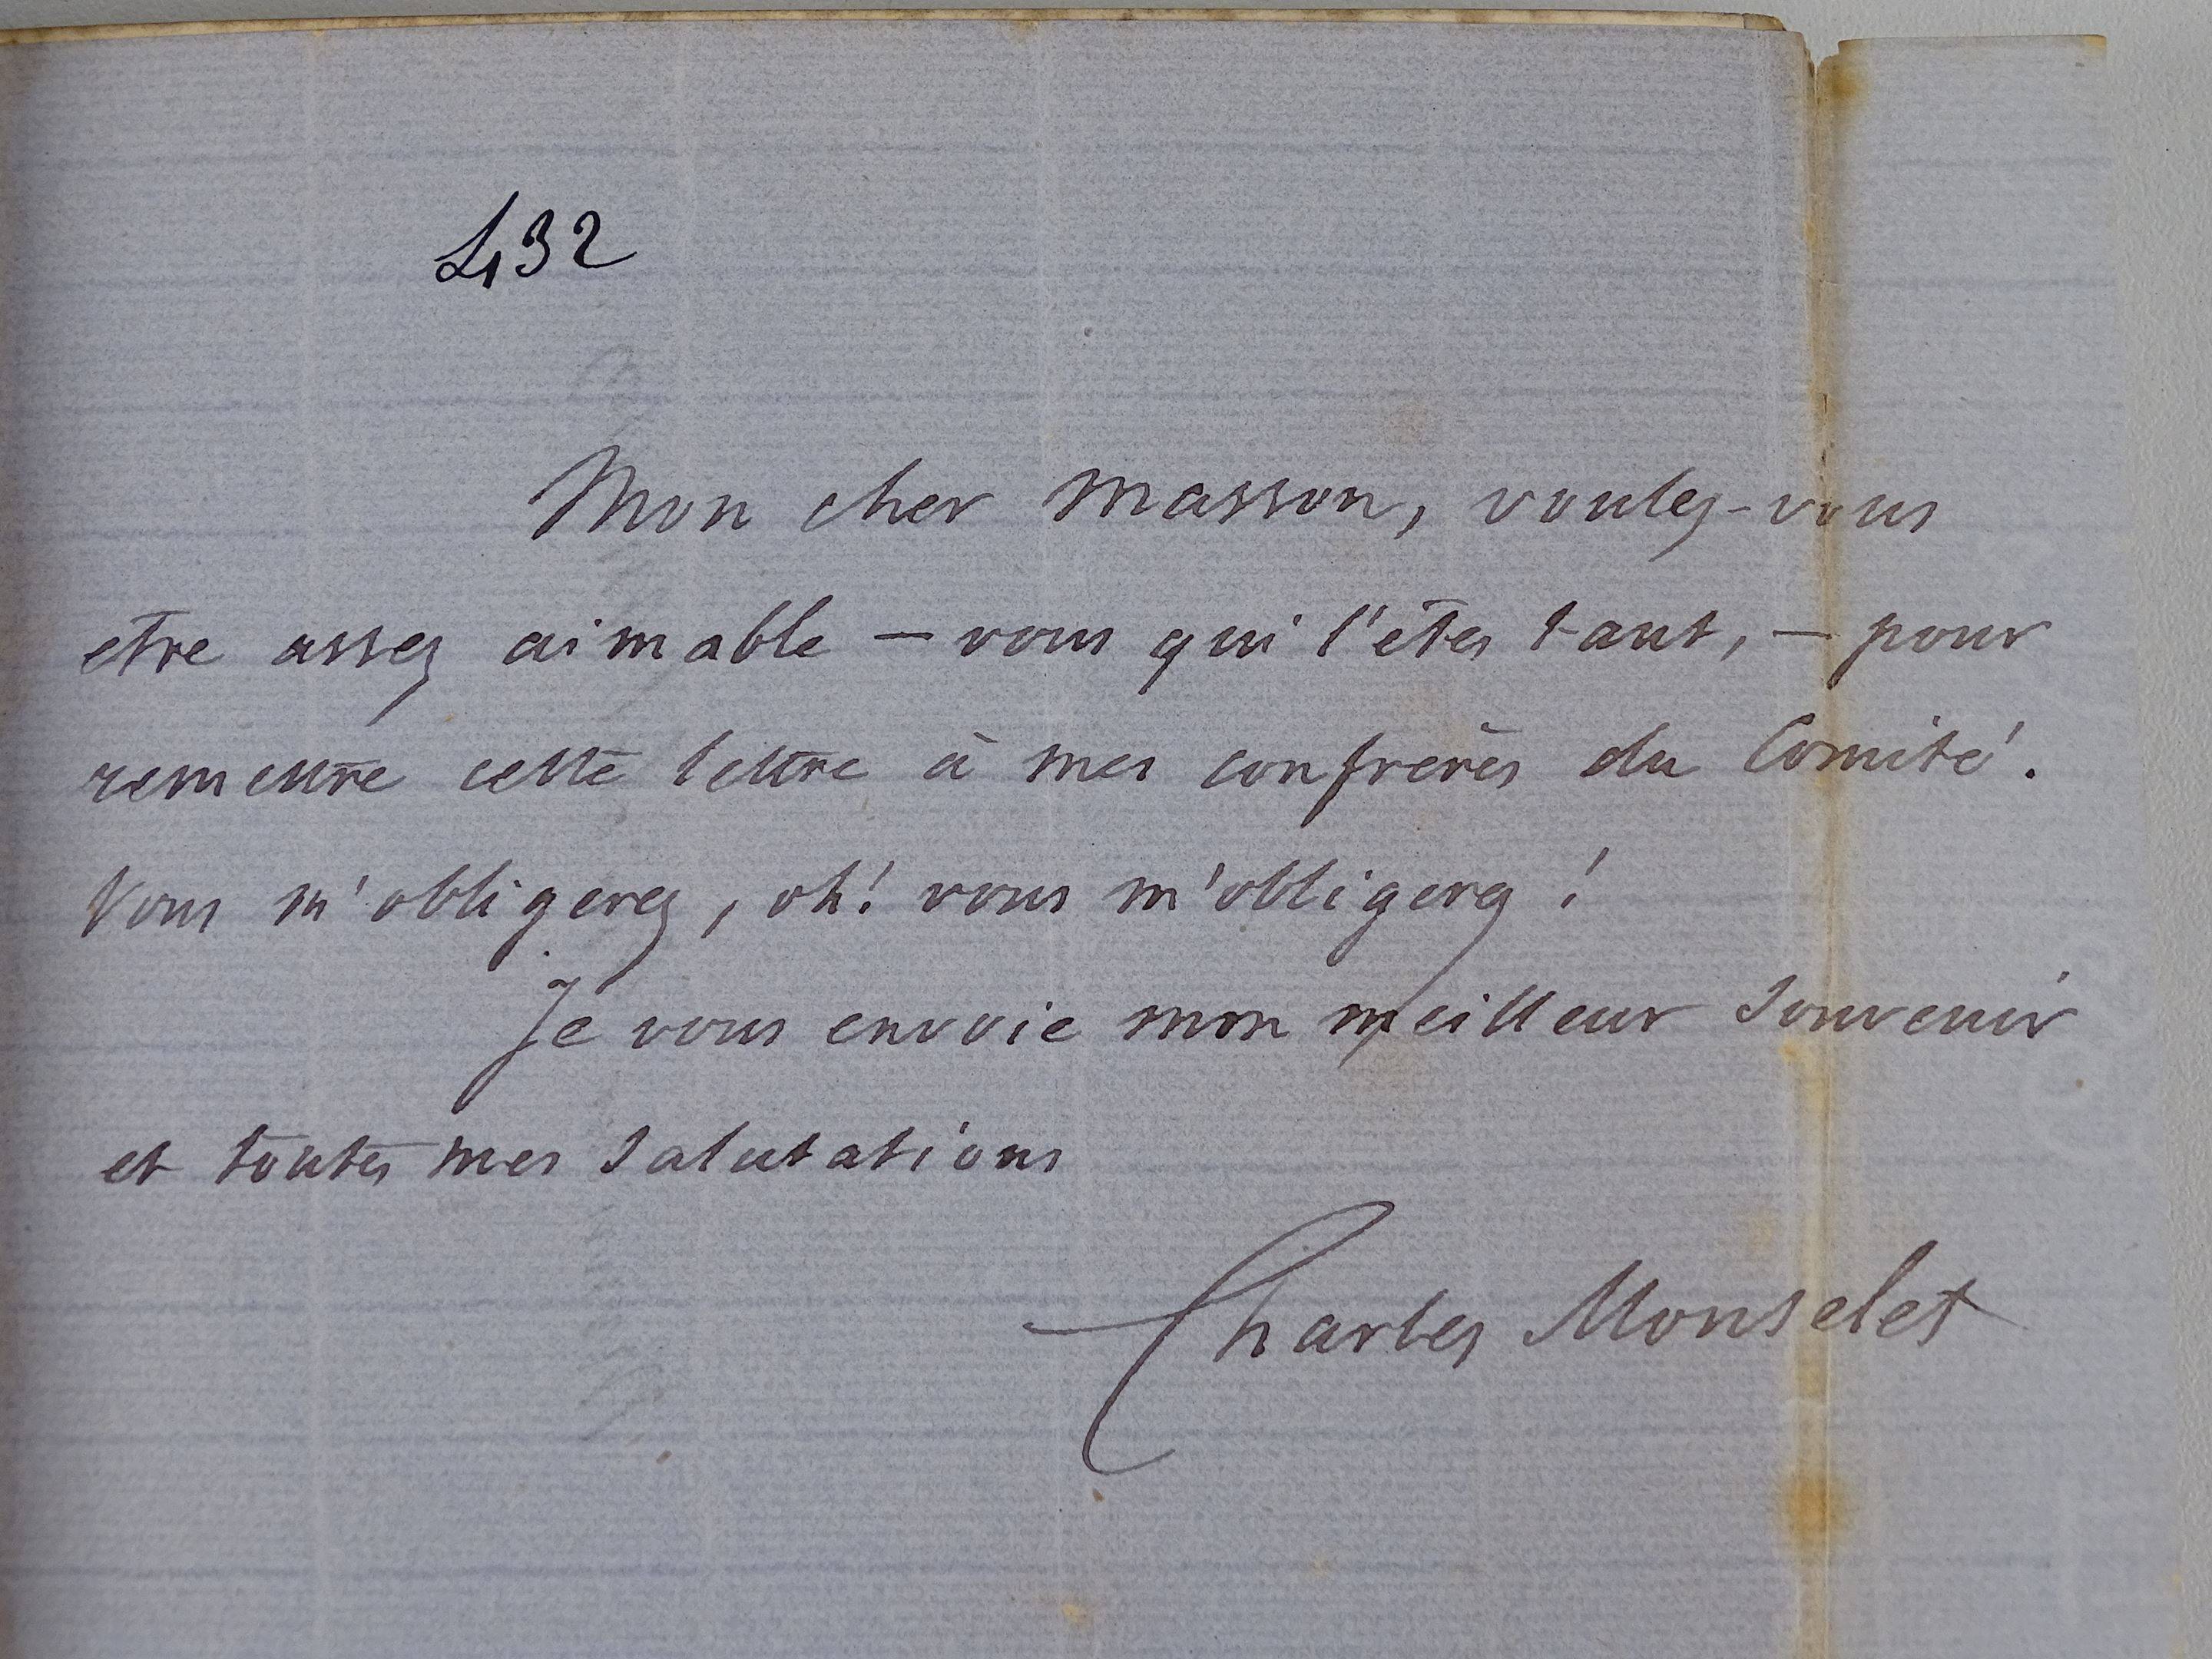 432
Mon cher Masson, voulez-vous
etre assez aimable — vous qui l'êtes tant, — pour
remettre cette lettre à mes confrères du Comité.
Vous m'obligerez, oh! vous m'obligerez!
Je vous envoie mon meilleur souvenir
et toutes mes salutations
Charles Monselet